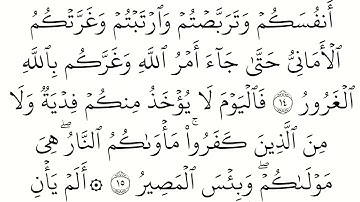 أَنفُسَكُمۡ وَتَرَبَّصۡتُمۡ وَٱرۡتَبۡتُمۡ وَغَرَّتۡكُمُ
ٱلۡأَمَانِيُّ حَتَّىٰ جَآءَ أَمۡرُ ٱللَّهِ وَغَرَّكُم بِٱللَّهِ
ٱلۡغَرُورُ ١٤ فَٱلۡيَوۡمَ لَا يُؤۡخَذُ مِنكُمۡ فِدۡيَةٞ وَلَا
مِنَ ٱلَّذِينَ كَفَرُواْۚ مَأۡوَىٰكُمُ ٱلنَّارُۖ هِيَ
مَوۡلَىٰكُمۡۖ وَبِئۡسَ ٱلۡمَصِيرُ ١٥ ۞ أَلَمۡ يَأۡنِ